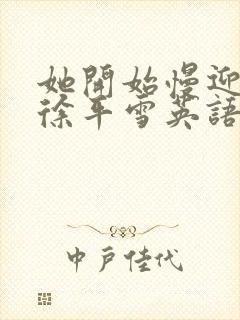 她開始慢迎
徐平雪英語
中戶佳代